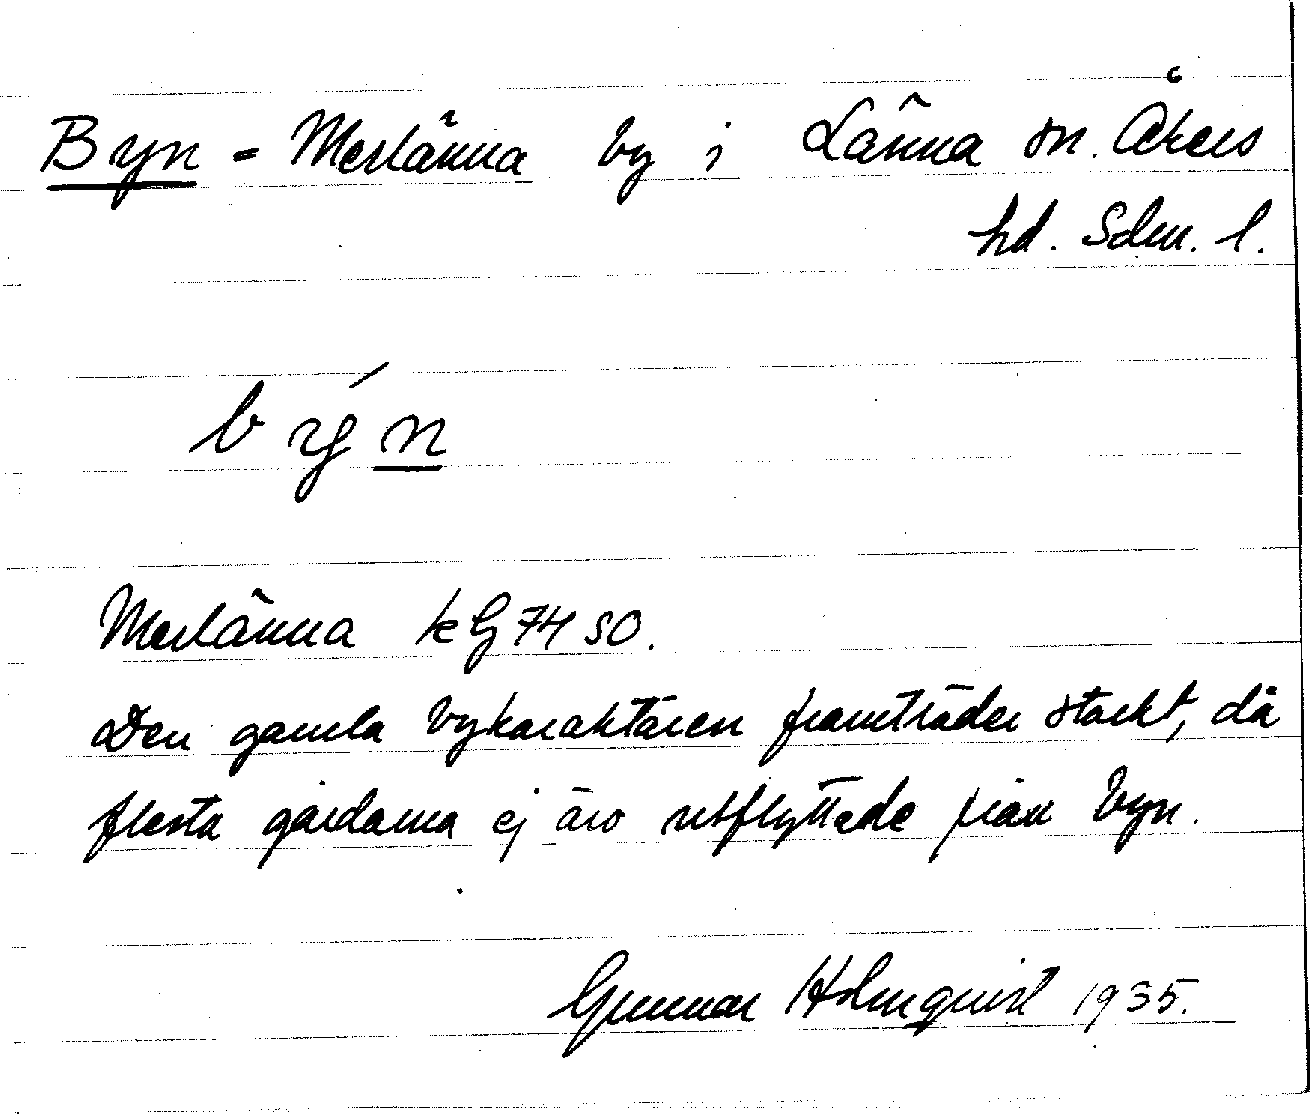 Byn = Merlänna by i Länna sn. Åkers
hd. Sdm. l.
býn
Merlänna kG 74 SO.
Den gamla bykaraktären framträder starkt, då
flesta gårdarna ej äro utflyttade från byn.
Gunnar Holmquist 1935.